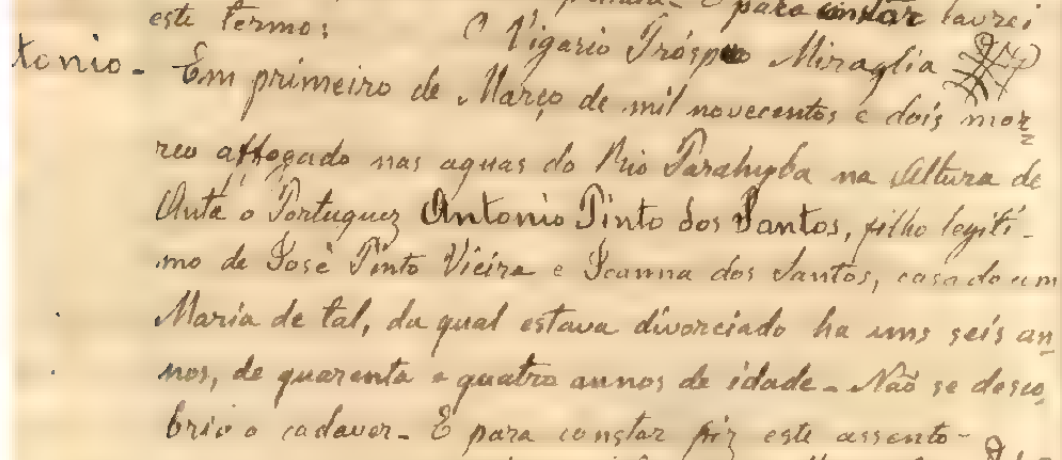 para constar lavrei
este termo:
O Vigario Próspero Miraglia
tonio -
Em primeiro de Março de mil novecentos e dois mor=
reu affogado nas aguas do Rio Parahyba na Altura de
Anta o Portuguez Antonio Pinto dos Santos, filho legiti-
mo de José Pinto Vieira e Joanna dos Santos, casado com
Maria de tal, da qual estava divorciado ha uns seis an=
nos, de quarenta e quatro annos de idade - Não se desco,
brio o cadaver - E para constar fiz este assento -